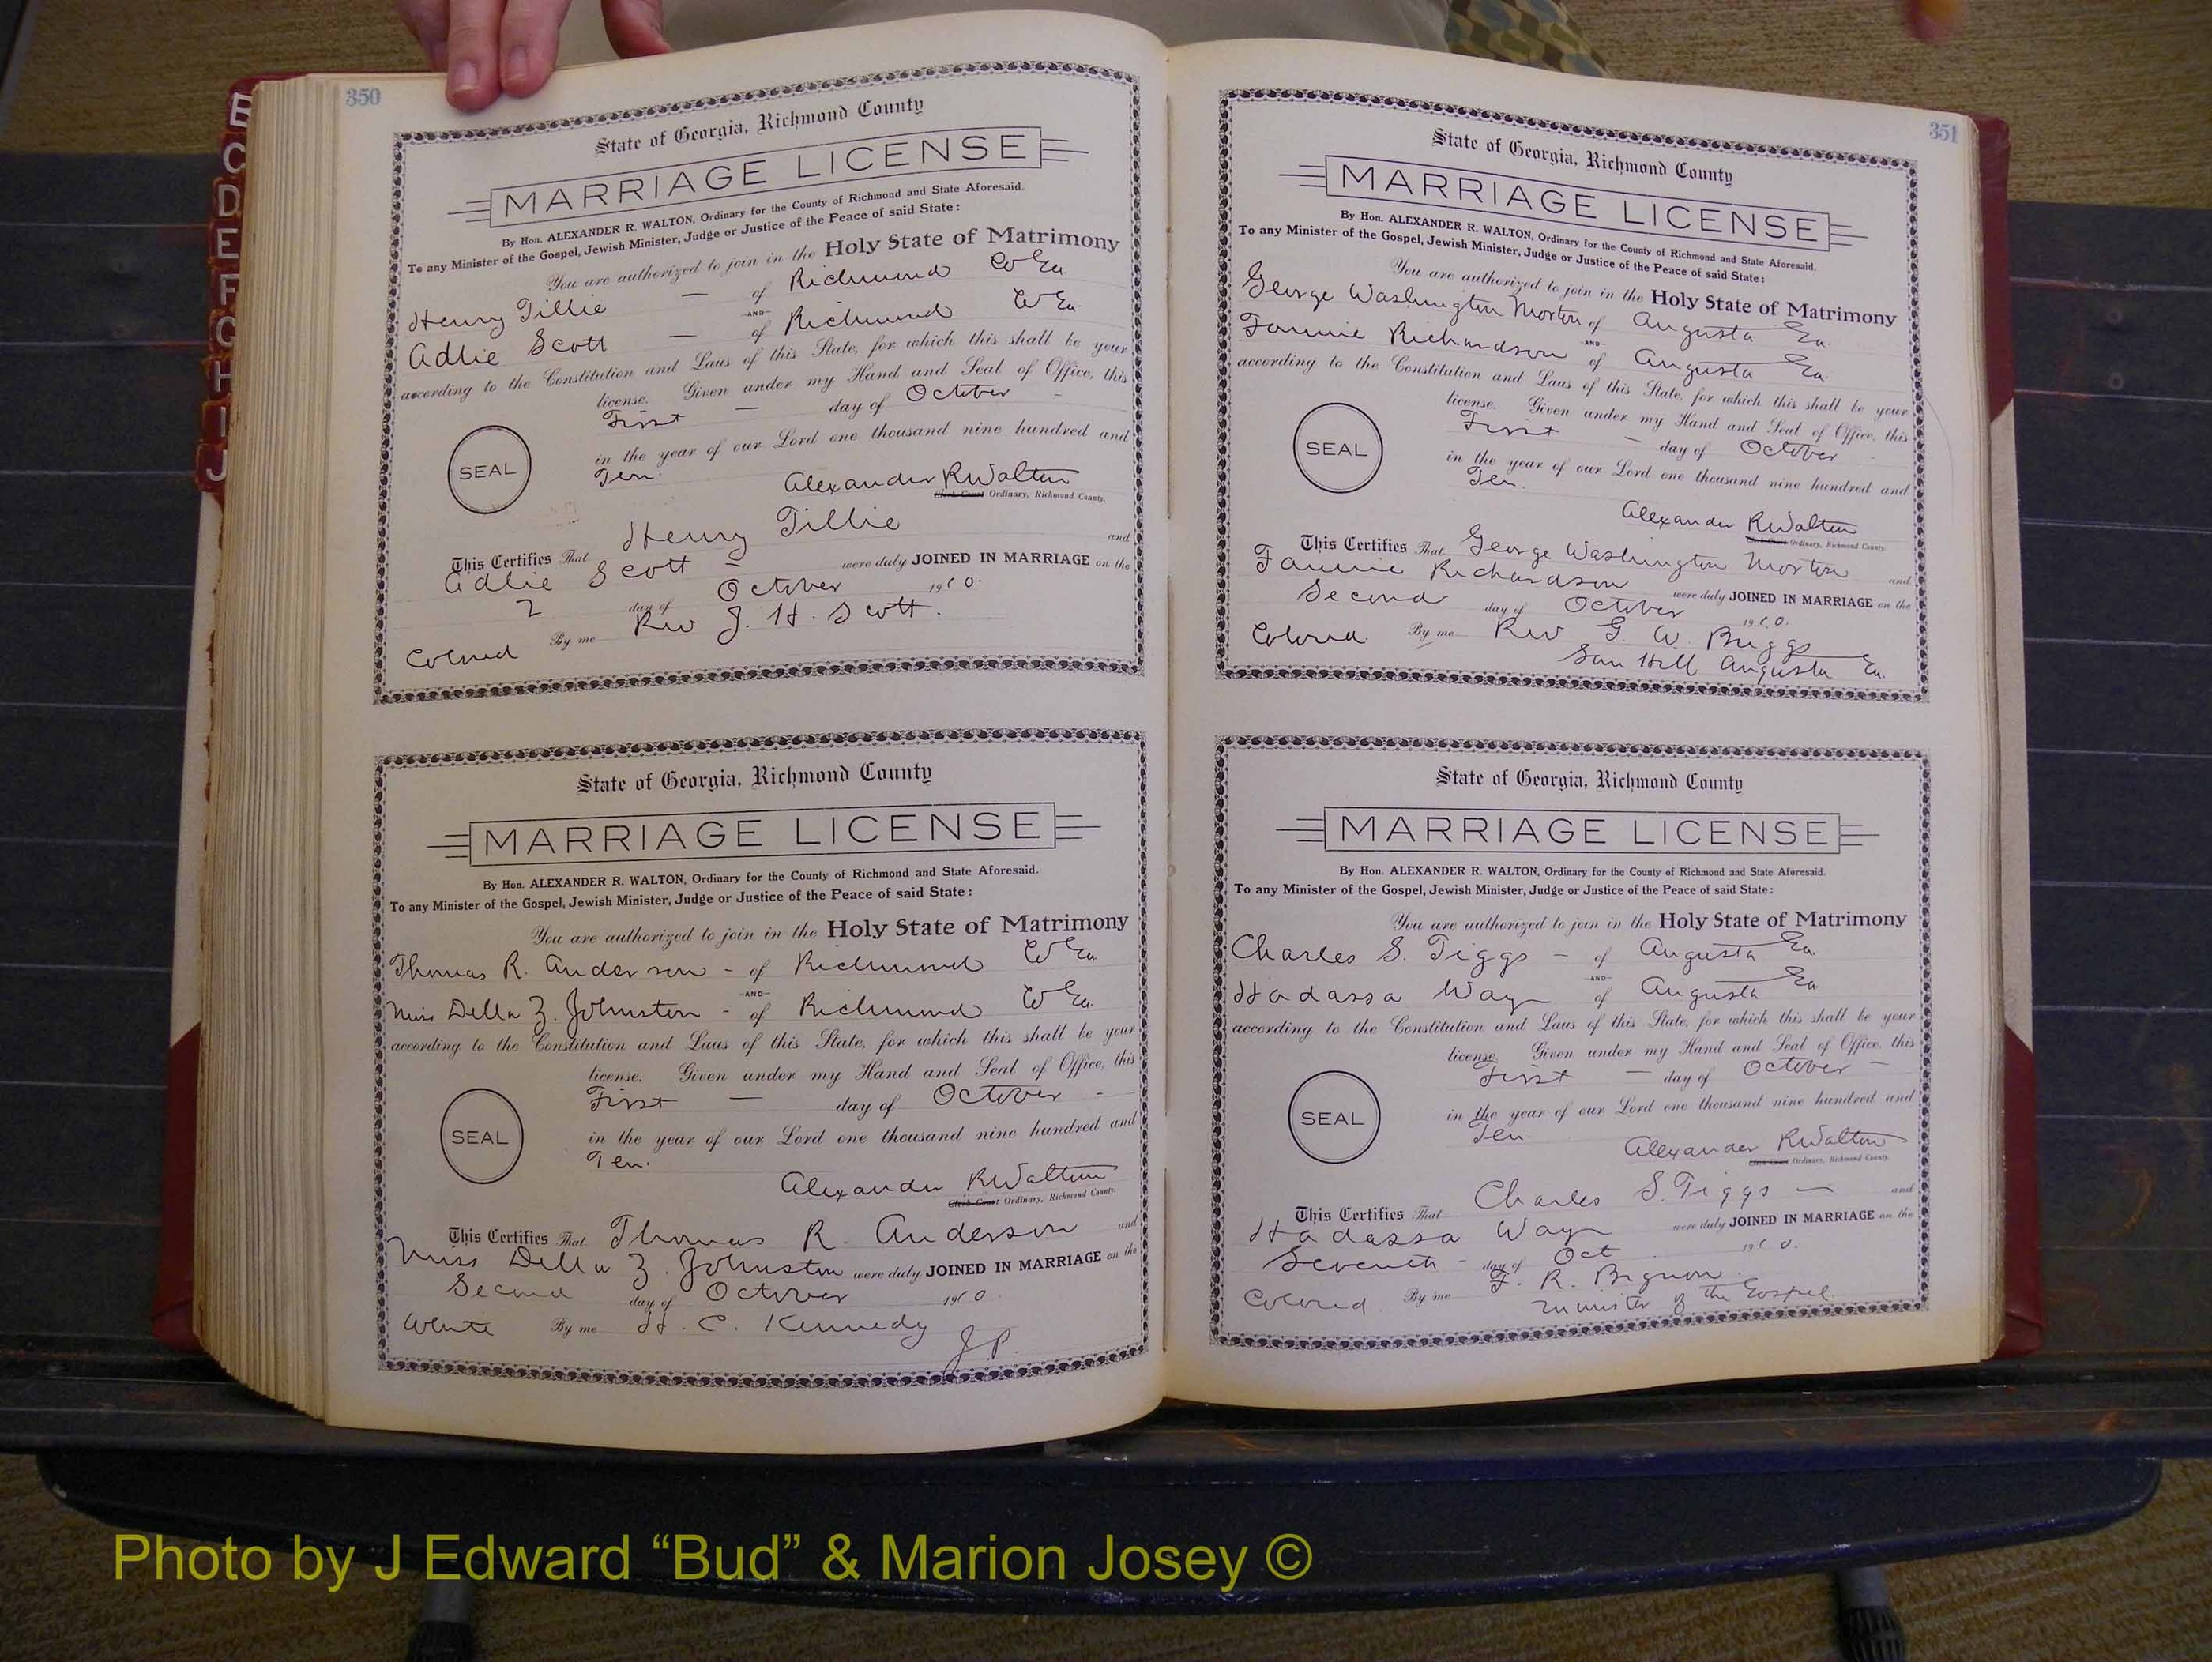 350
State of Georgia, Richmond County
MARRIAGE LICENSE
By Hon. ALEXANDER R. WALTON, Ordinary for the County of Richmond and State Aforesaid.
To any Minister of the Gospel, Jewish Minister, Judge or Justice of the Peace of said State:
You are authorized to join in the Holy State of Matrimony
Henry Tillie — of Richmond Co Ga.
-AND-
Adlie Scott — of Richmond Co Ga.
according to the Constitution and Laws of this State, for which this shall be your
license. Given under my Hand and Seal of Office, this
First — day of October -
SEAL
in the year of our Lord one thousand nine hundred and
Ten.
Alexander R Walton
Clerk Court Ordinary, Richmond County.
This Certifies That Henry Tillie and
Adlie Scott = were duly JOINED IN MARRIAGE on the
2 day of October 1910.
Colored By me Rev J. H. Scott.
State of Georgia, Richmond County
MARRIAGE LICENSE
By Hon. ALEXANDER R. WALTON, Ordinary for the County of Richmond and State Aforesaid.
To any Minister of the Gospel, Jewish Minister, Judge or Justice of the Peace of said State:
You are authorized to join in the Holy State of Matrimony
Thomas R. Anderson - of Richmond Co Ga
-AND-
Miss Della Z. Johnston - of Richmond Co Ga.
according to the Constitution and Laws of this State, for which this shall be your
license. Given under my Hand and Seal of Office, this
First — day of October -
SEAL
in the year of our Lord one thousand nine hundred and
Ten.
Alexander R Walton
Clerk Court Ordinary, Richmond County.
This Certifies That Thomas R. Anderson and
Miss Della Z. Johnston were duly JOINED IN MARRIAGE on the
Second day of October 1910.
White By me H. C. Kennedy
J.P.
351
State of Georgia, Richmond County
MARRIAGE LICENSE
By Hon. ALEXANDER R. WALTON, Ordinary for the County of Richmond and State Aforesaid.
To any Minister of the Gospel, Jewish Minister, Judge or Justice of the Peace of said State:
You are authorized to join in the Holy State of Matrimony
George Washington Morton of Augusta Ga.
-AND-
Fannie Richardson of Augusta Ga.
according to the Constitution and Laws of this State, for which this shall be your
license. Given under my Hand and Seal of Office, this
First — day of October
SEAL
in the year of our Lord one thousand nine hundred and
Ten.
Alexander R Walton
Clerk Court Ordinary, Richmond County
This Certifies That George Washington Morton and
Fannie Richardson were duly JOINED IN MARRIAGE on the
Second day of October 1910.
Colored. By me Rev G. W. Briggs
San Hill Augusta Ga.
State of Georgia, Richmond County
MARRIAGE LICENSE
By Hon. ALEXANDER R. WALTON, Ordinary for the County of Richmond and State Aforesaid.
To any Minister of the Gospel, Jewish Minister, Judge or Justice of the Peace of said State:
You are authorized to join in the Holy State of Matrimony
Charles S. Tiggs — of Augusta Ga.
-AND-
Hadassa Way of Augusta Ga
according to the Constitution and Laws of this State, for which this shall be your
license. Given under my Hand and Seal of Office, this
First — day of October —
SEAL
in the year of our Lord one thousand nine hundred and
Ten.
Alexander R Walton
Clerk Court Ordinary, Richmond County.
This Certifies That Charles S. Tiggs — and
Hadassa Way were duly JOINED IN MARRIAGE on the
Seventh - day of Oct 1910.
Colored By me F. R. Bignon.
Minister of the Gospel.
C
D
E
F
G
H
I
J
Photo by J Edward “Bud” & Marion Josey ©